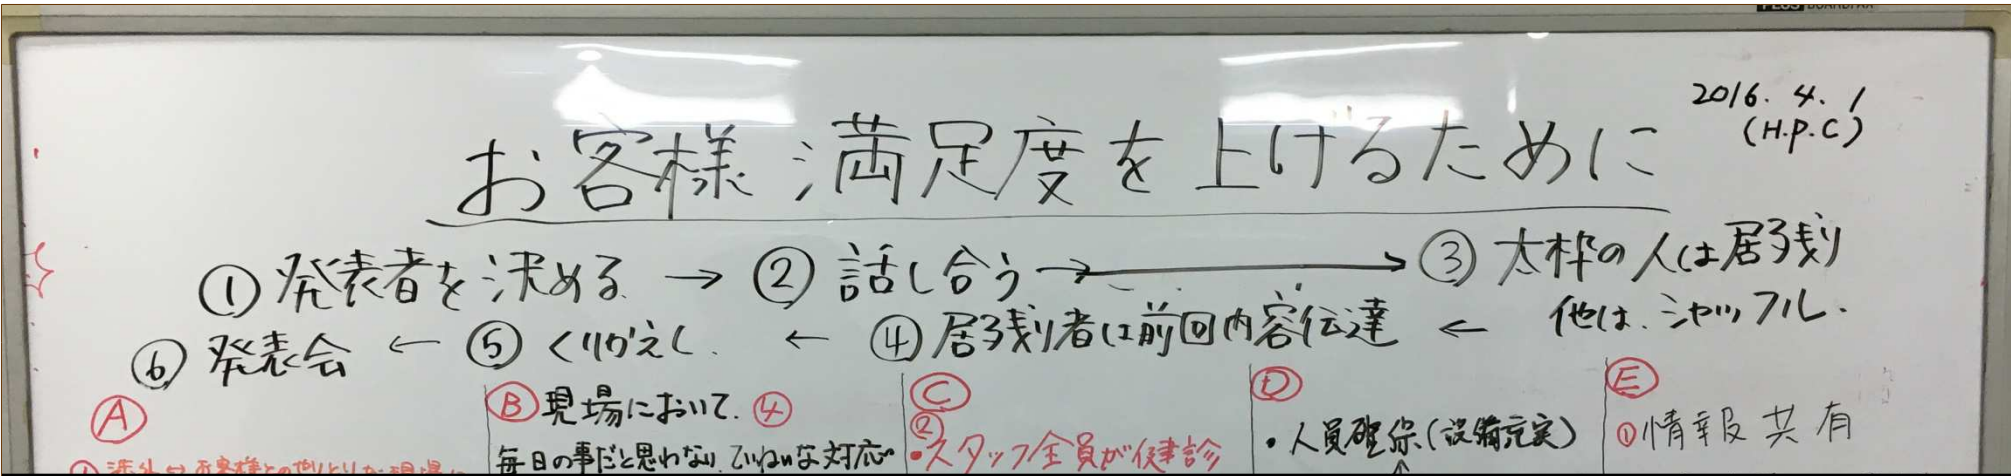 PLUS
2016. 4. 1
(H.P.C)
お客様満足度を上げるために
①発表者を決める → ②話し合う → ③太枠の人は居残り
他は、シャッフル.
← ④居残り者は前回内容伝達 ←
⑤くりかえし.
⑥発表会 ←
Ⓐ
Ⓑ現場において. ④
毎日の事だと思わない ていねいな対応
Ⓒ
②
・スタッフ全員が健診
Ⓓ
・人員確保(設備充実)
Ⓔ
①情報共有